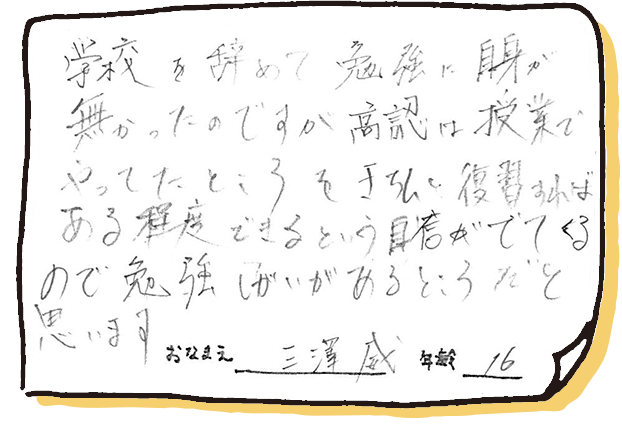 学校を辞めて勉強に自身が
無かったのですが高認は授業で
やってたところをきちんと復習すれば
ある程度できるという自信がでてくる
ので勉強しがいがあるところだと
思います
おなまえ 三澤 威 年齢 16